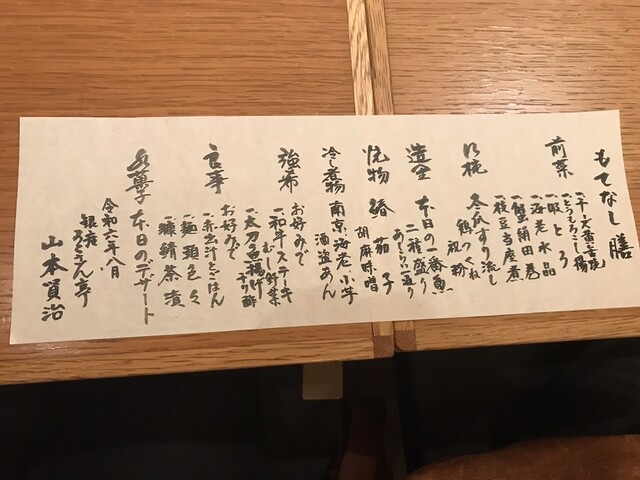 もてなし膳
前菜
一、とうもろこし揚
一、蝦とろ
一、海老水晶
一、蟹絹田巻
一、枝豆当座煮
冬瓜すり流し
鶏つくね
造里
本日の一番魚
二種盛り
あしらい一通り
焼物
鰆
茄子
胡麻味噌
冷し煮物
南京、海老、小芋
酒盗あん
強肴
お好みで
一、和牛ステーキ
むし野菜
一、太刀魚揚げ
お好みで
一、赤出汁とごはん
一、麺類色々
一、鯖茶漬
水菓子
本日のデザート
令和六年八月
銀座
うさぎん亭
山本賢治